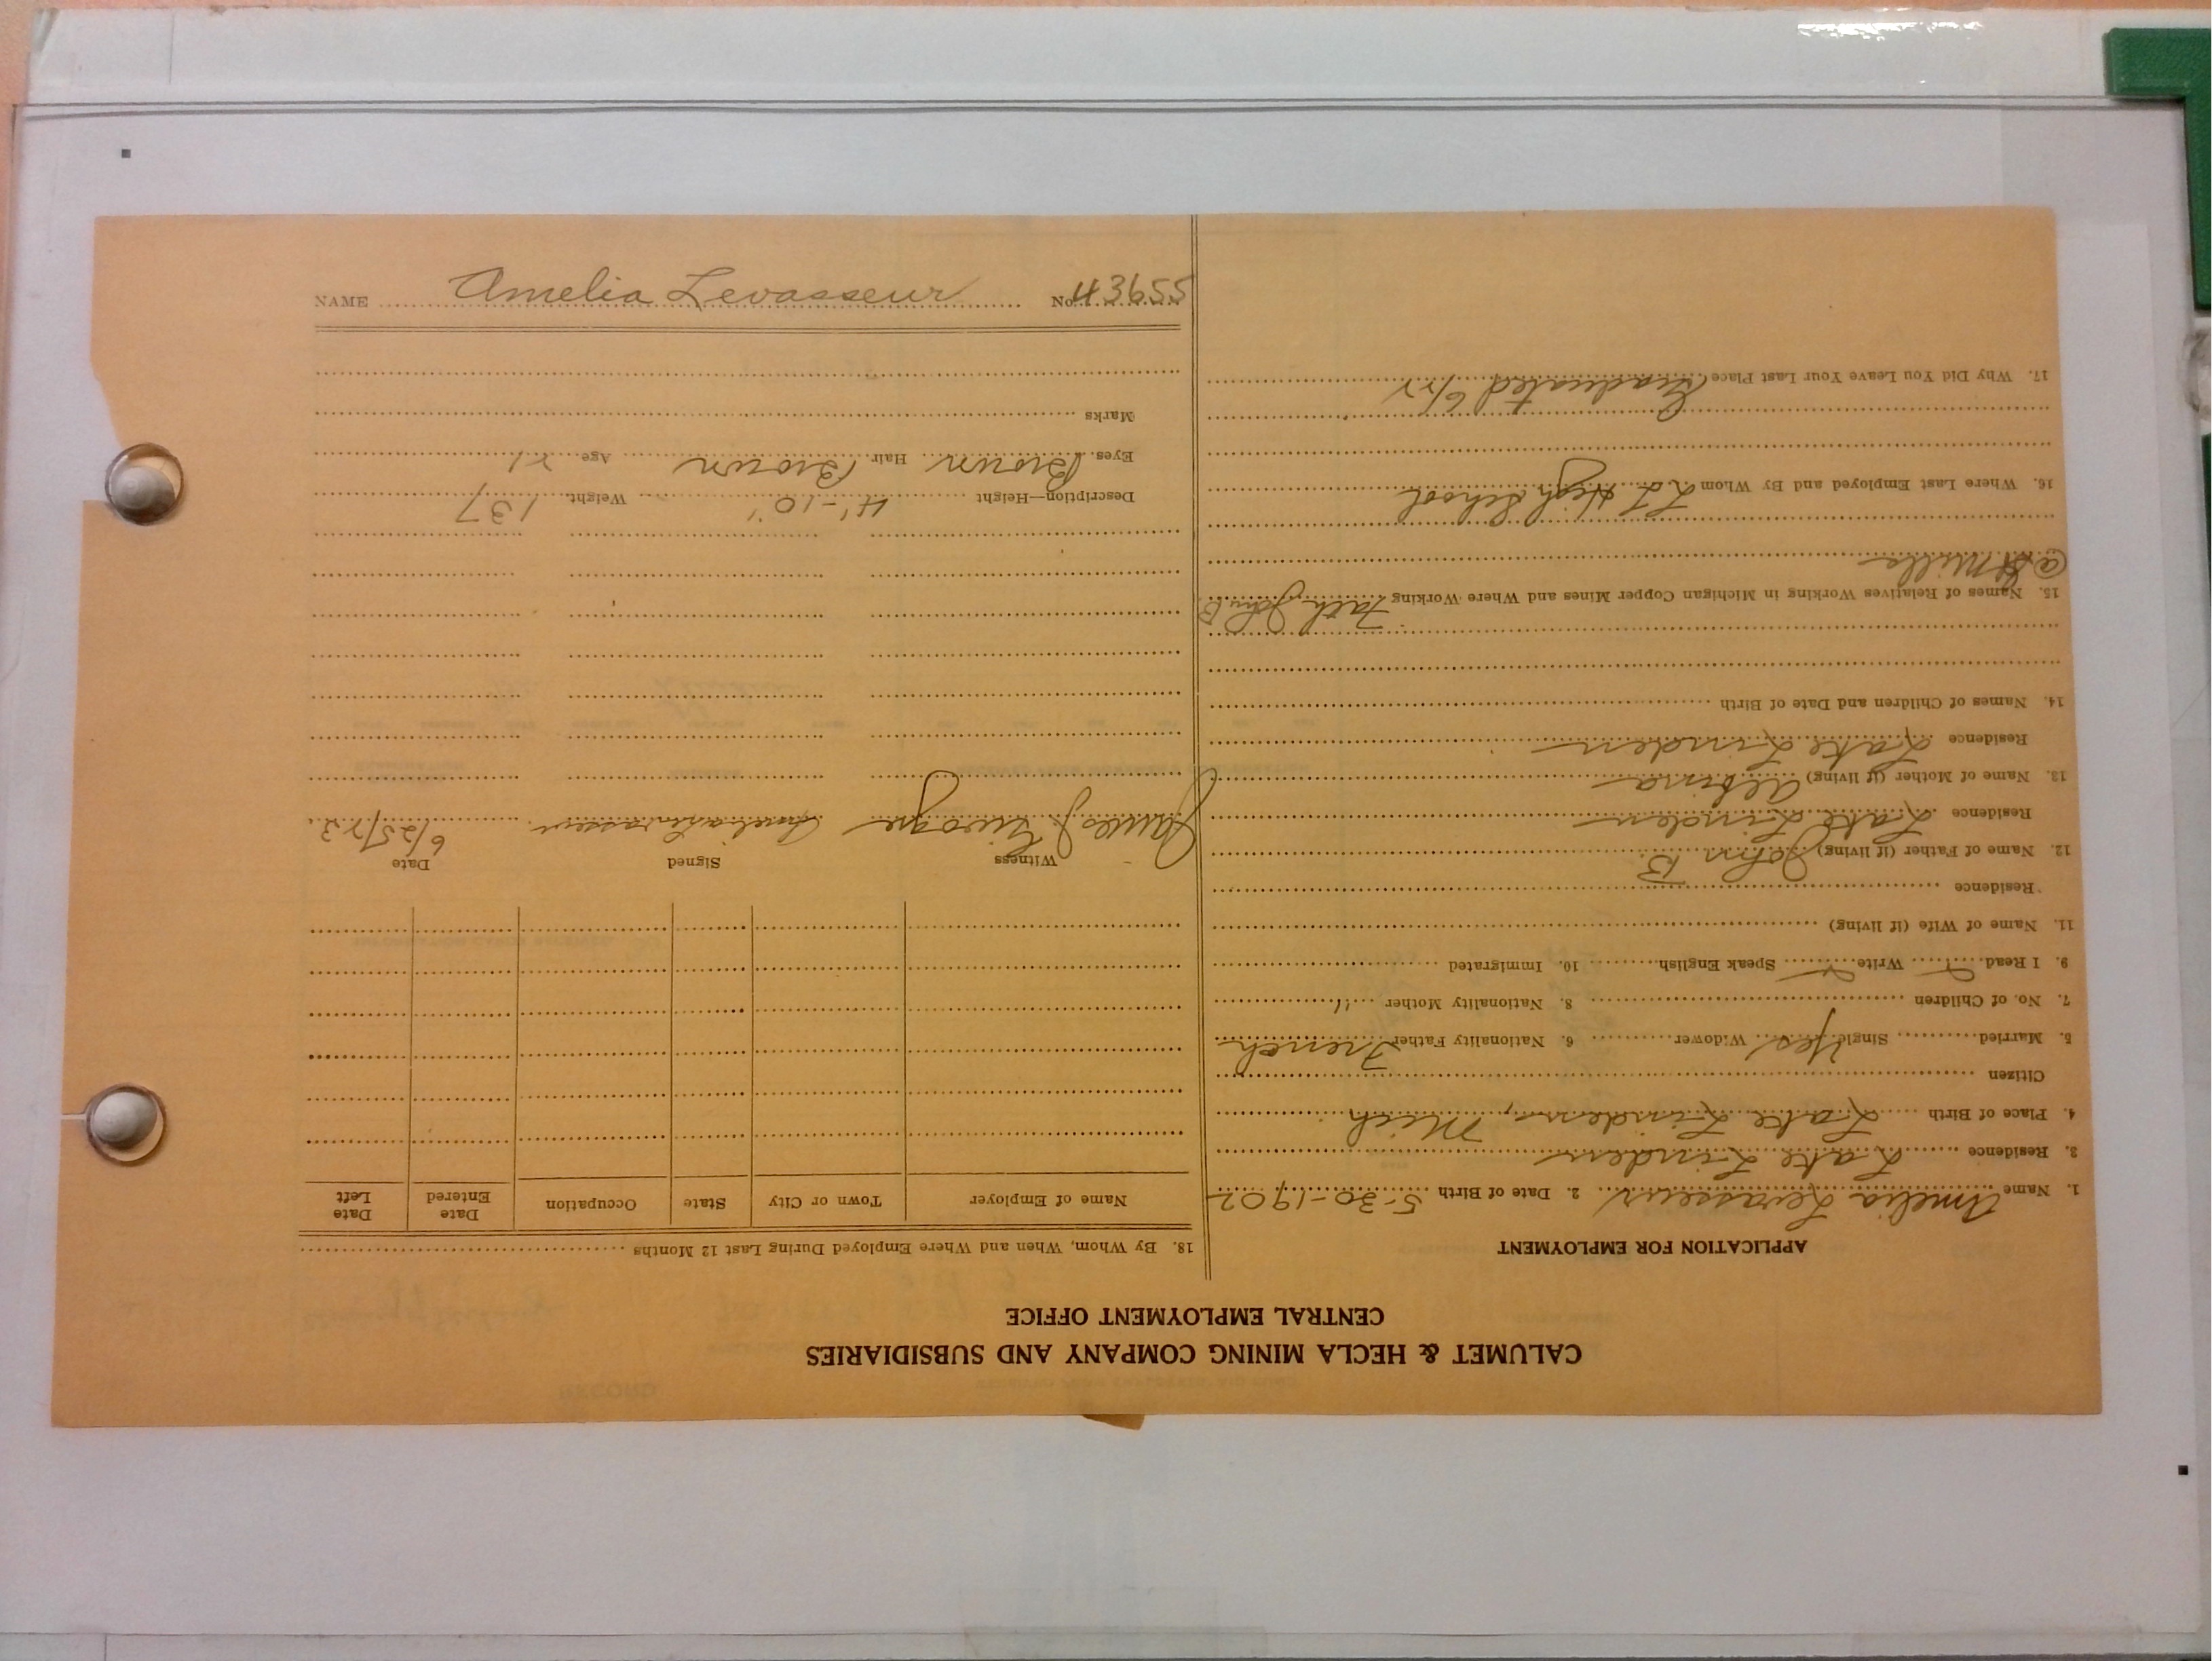 CALUMET & HECLA MINING COMPANY AND SUBSIDIARIES
CENTRAL EMPLOYMENT OFFICE
APPLICATION FOR EMPLOYMENT
1. Name Amelia Levasseur 2. Date of Birth 5-30-1902
3. Residence Lake Linden
4. Place of Birth Lake Linden, Mich
Citizen
5. Married Single Yes Widower 6. Nationality Father French
7. No. of Children 8. Nationality Mother "
9. I Read Write Speak English 10. Immigrated
11. Name of Wife (if living)
Residence
12. Name of Father (if living) John B
Residence Lake Linden
13. Name of Mother (if living) Albina
Residence Lake Linden
14. Names of Children and Date of Birth
15. Names of Relatives Working in Michigan Copper Mines and Where Working Fath John B.
@ St Mills
16. Where Last Employed and By Whom L L High School
17. Why Did You Leave Your Last Place Graduated 6/22
18. By Whom, When and Where Employed During Last 12 Months
Name of Employer Town or City State Occupation Date Entered Date Left
Witness Signed Date
James J. Amelia Levasseur 6/25/23
Description—Height 4'-10" Weight 137
Eyes Brown Hair Brown Age 21
Marks
NAME Amelia Levasseur No. 43655